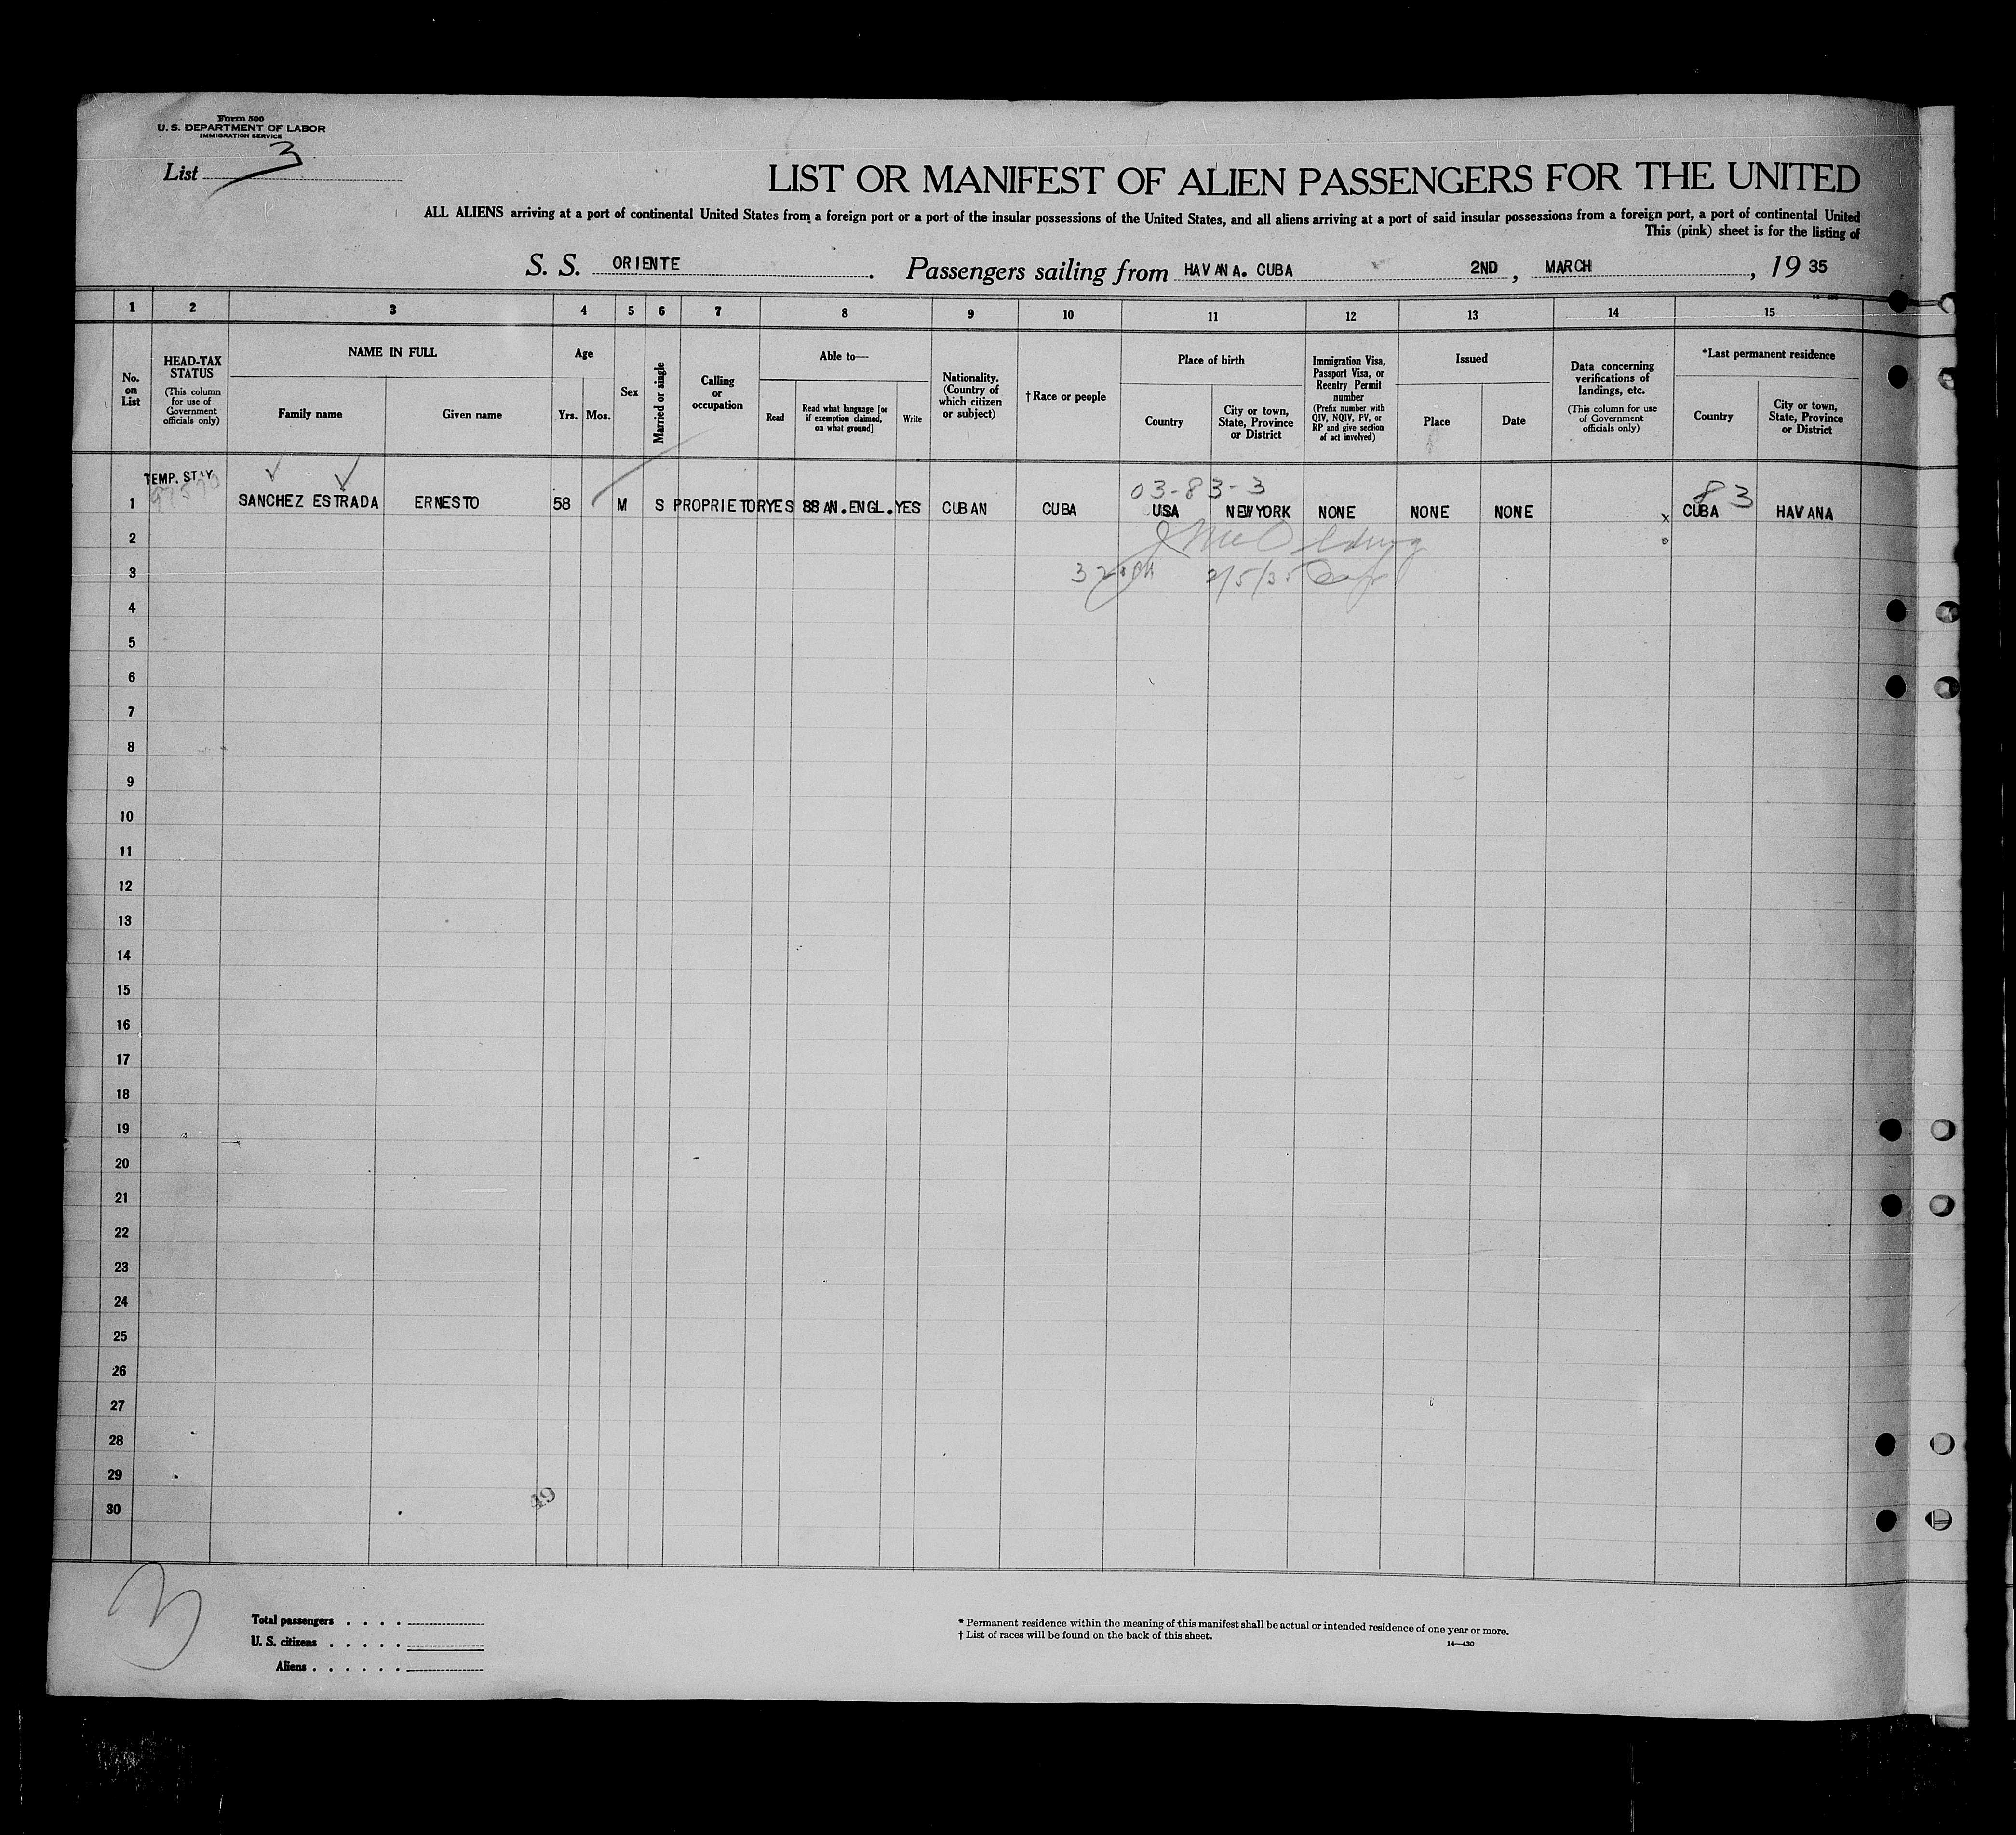 Form 500
U. S. DEPARTMENT OF LABOR
IMMIGRATION SERVICE
List 3
LIST OR MANIFEST OF ALIEN PASSENGERS FOR THE UNITED
ALL ALIENS arriving at a port of continental United States from a foreign port or a port of the insular possessions of the United States, and all aliens arriving at a port of said insular possessions from a foreign port, a port of continental United
This (pink) sheet is for the listing of
S. S. ORIENTE. Passengers sailing from HAVANA. CUBA 2ND, MARCH, 19 35
1 2 3 4 5 6 7 8 9 10 11 12 13 14 15
No. on List
HEAD-TAX STATUS
(This column for use of Government officials only)
NAME IN FULL
Family name Given name
Age
Yrs. Mos.
Sex
Married or single
Calling or occupation
Able to—
Read
Read what language [or if exemption claimed, on what ground]
Write
Nationality. (Country of which citizen or subject)
†Race or people
Place of birth
Country
City or town, State, Province or District
Immigration Visa, Passport Visa, or Reentry Permit number
(Prefix number with QIV, NQIV, PV, or RP and give section of act involved)
Issued
Place Date
Data concerning verifications of landings, etc.
(This column for use of Government officials only)
*Last permanent residence
Country
City or town, State, Province or District
TEMP. STAY
03-83-3
83
1 SANCHEZ ESTRADA ERNESTO 58 M S PROPRIETOR YES AN.ENGL. YES CUBAN CUBA USA NEWYORK NONE NONE NONE x CUBA HAVANA
2
3
4
5
6
7
8
9
10
11
12
13
14
15
16
17
18
19
20
21
22
23
24
25
26
27
28
29
30
49
3
Total passengers
U. S. citizens
Aliens
* Permanent residence within the meaning of this manifest shall be actual or intended residence of one year or more.
† List of races will be found on the back of this sheet.
14—430